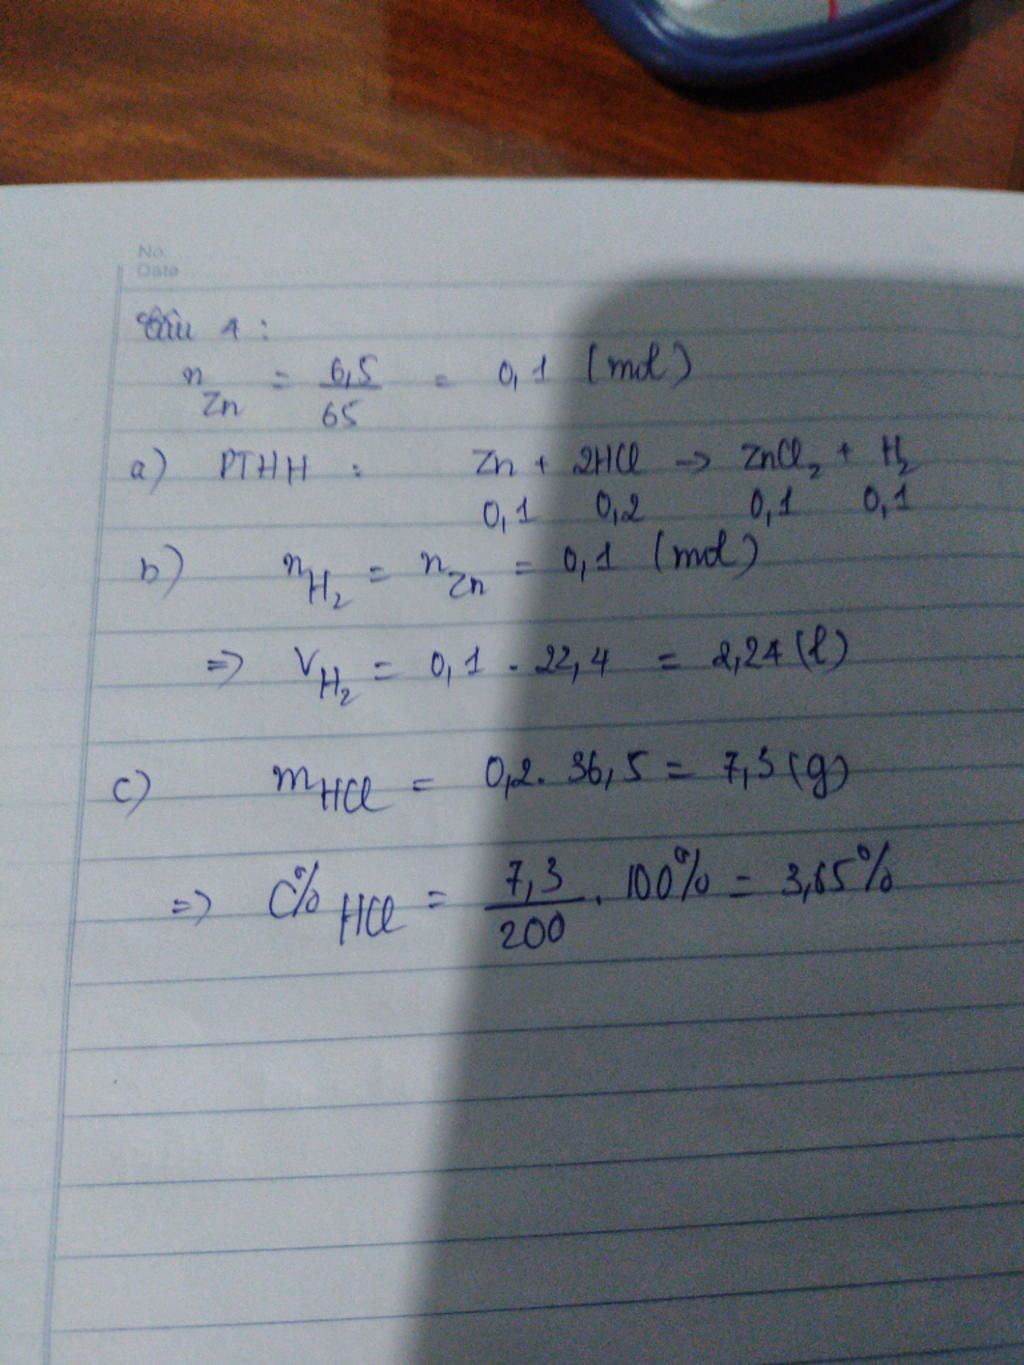 No.
Date
Câu 4 :
n Zn = 6,5/65 = 0,1 (mol)
a) PTHH : Zn + 2HCl -> ZnCl₂ + H₂
0,1 0,2 0,1 0,1
b) n H₂ = n Zn = 0,1 (mol)
=> V H₂ = 0,1 . 22,4 = 2,24 (l)
c) m HCl = 0,2 . 36,5 = 7,3 (g)
=> C% HCl = 7,3/200 . 100% = 3,65%